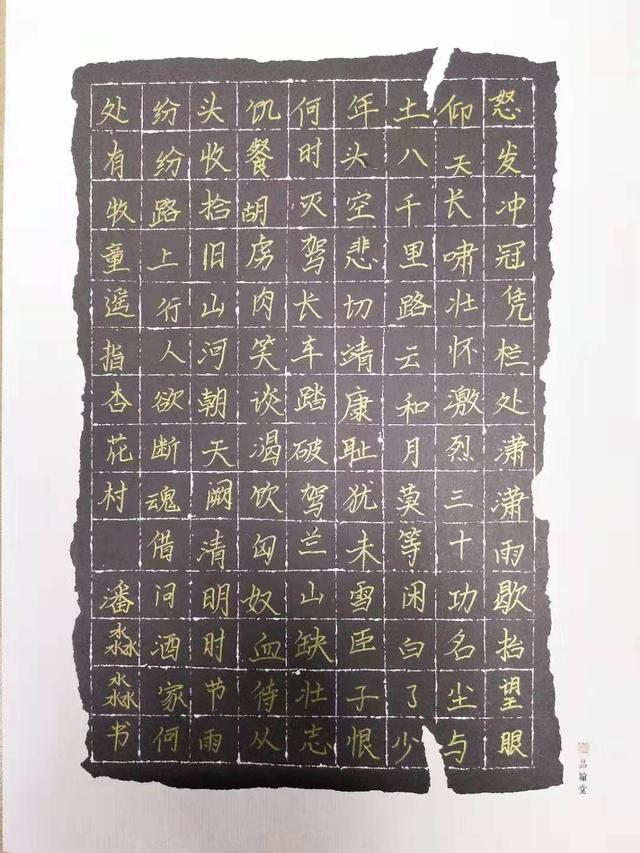 怒发冲冠凭栏处潇潇雨歇抬望眼
仰天长啸壮怀激烈三十功名尘与
土八千里路云和月莫等闲白了少
年头空悲切靖康耻犹未雪臣子恨
何时灭驾长车踏破驾兰山缺壮志
饥餐胡虏肉笑谈渴饮匈奴血待从
头收拾旧山河朝天阙清明时节雨
纷纷路上行人欲断魂借问酒家何
处有牧童遥指杏花村 潘淼淼书
品翰堂